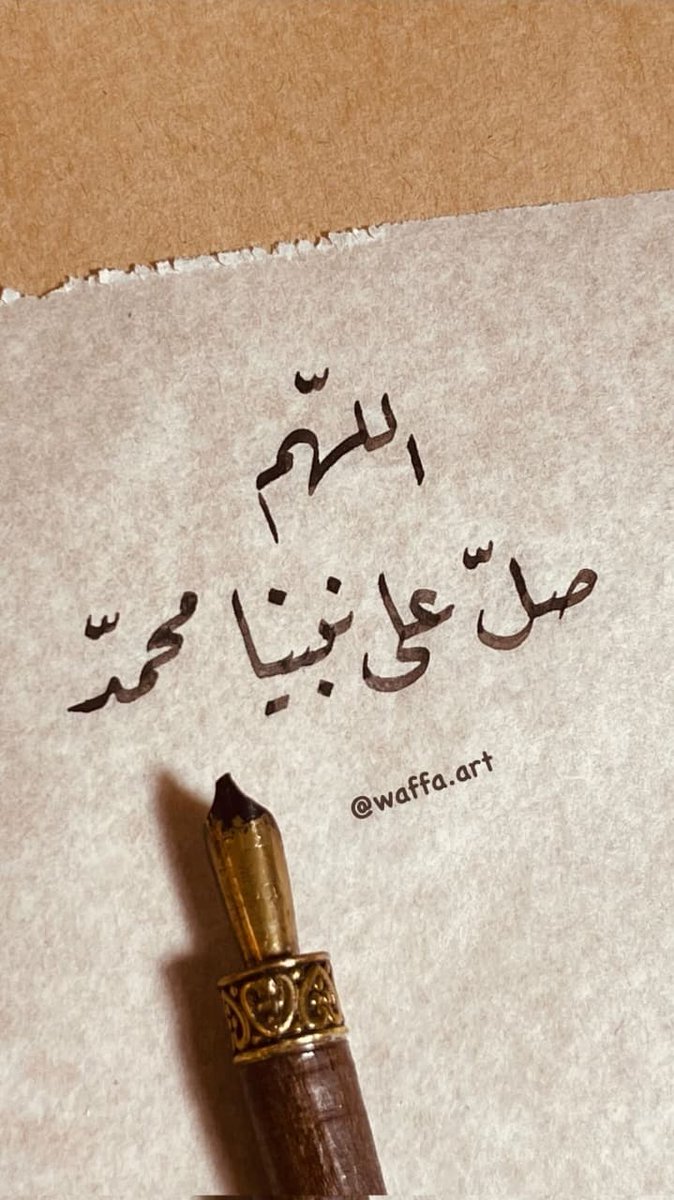 اللهّم
صلّ على نبينا محمدّ
@waffa.art